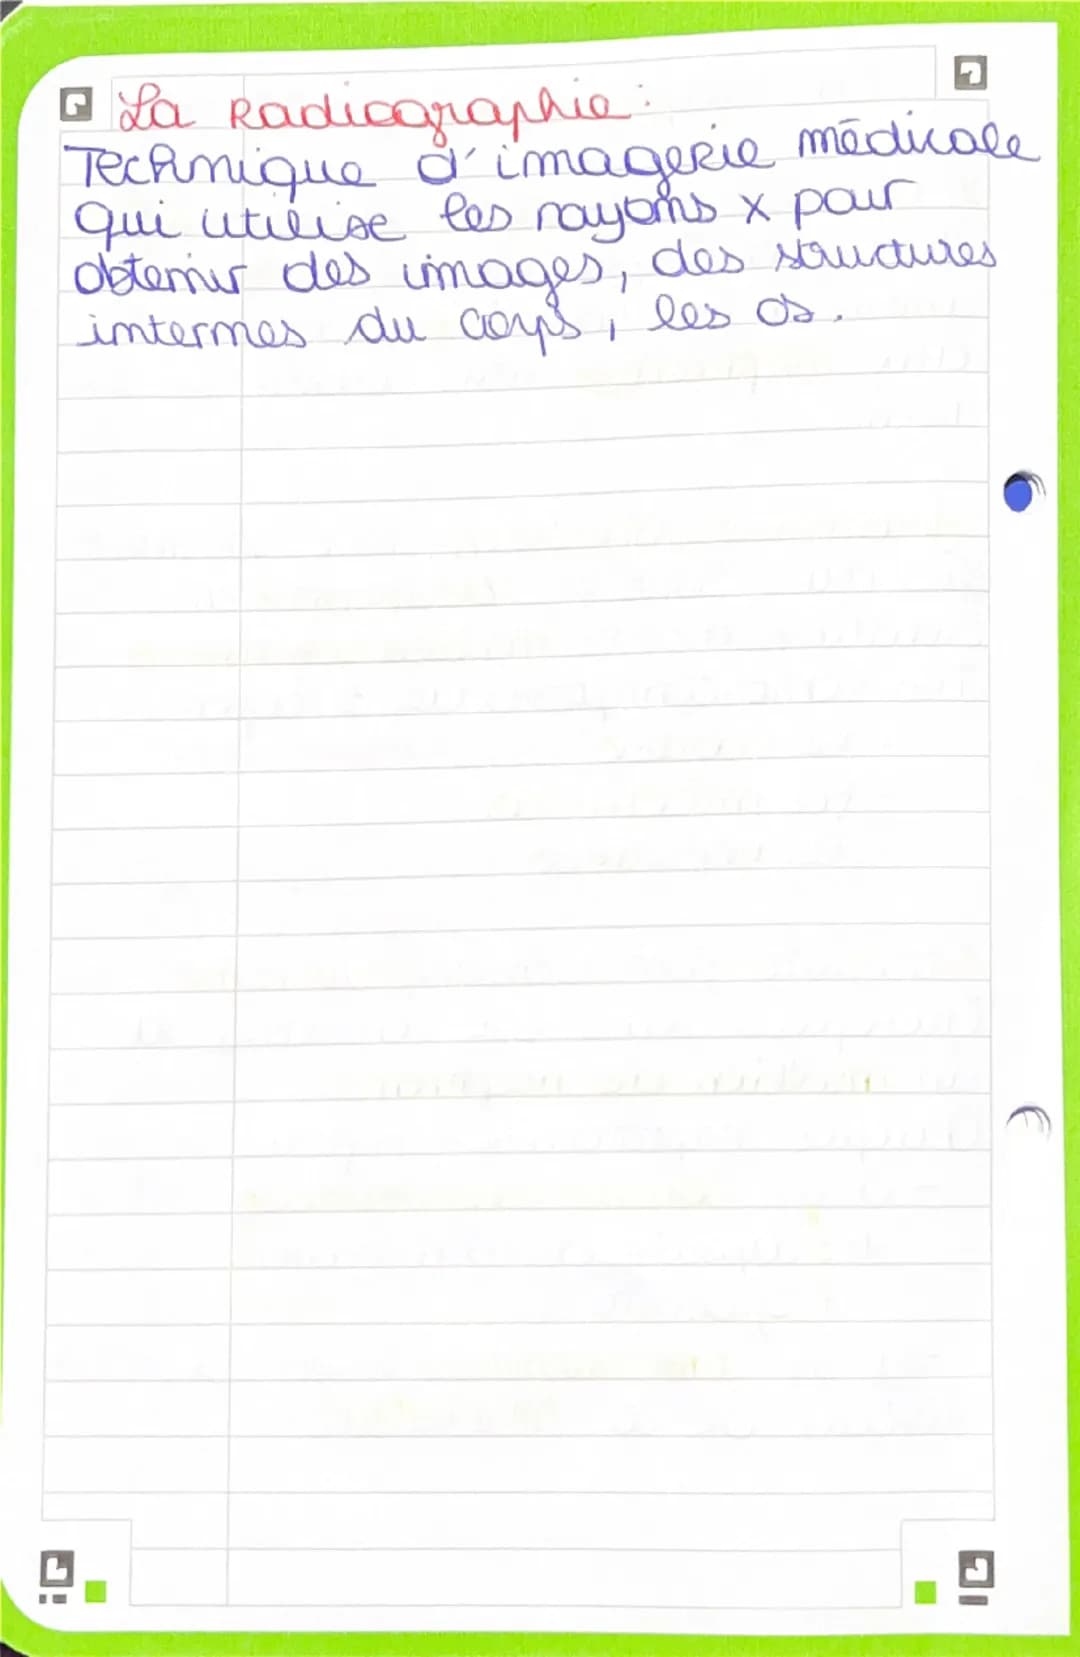 La Radiographie :
Technique d'imagerie médicale
qui utilise les rayons x pour
obtenir des images, des structures
internes du corps, les os.